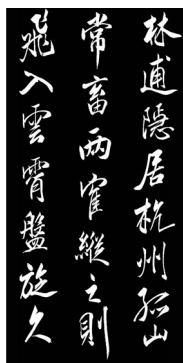 林逋隐居杭州孤山
常畜两隺縱之則
飛入雲霄盤旋久